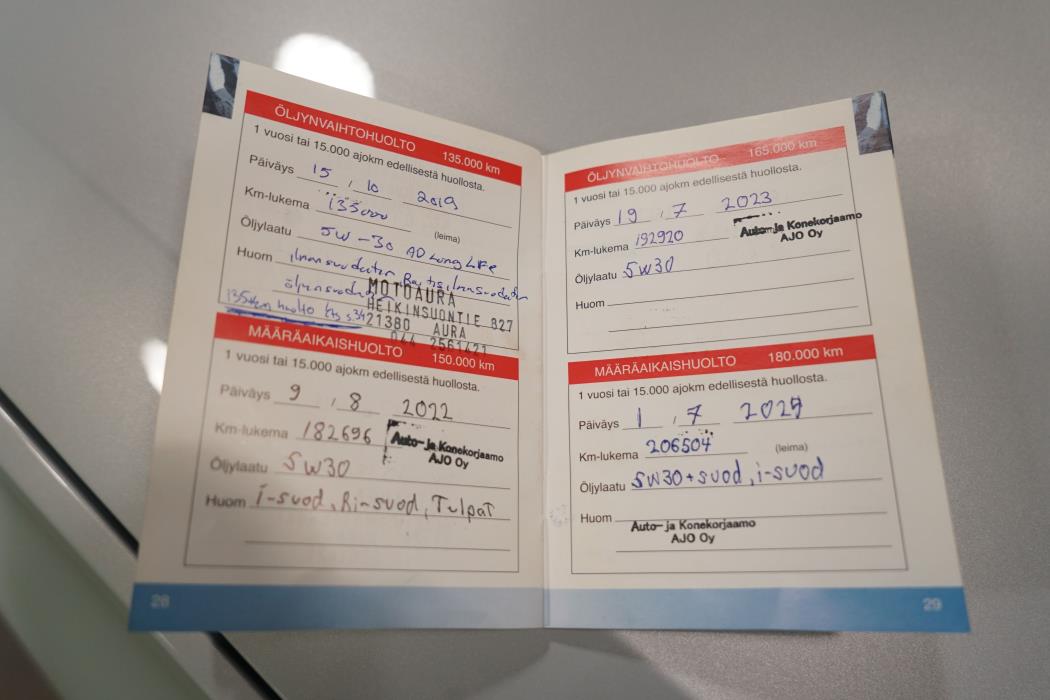 ÖLJYNVAIHTOHUOLTO 135.000 km
1 vuosi tai 15.000 ajokm edellisestä huollosta.
Päiväys 15 / 10 2019
Km-lukema 133000
(leima)
Öljylaatu 5W-30 AD Long Life
Huom ilmansuodatin, Raitisilmansuodatin
öljynsuodatin
135tkm huolto kts s.34
MOTOAURA
HEIKINSUONTIE 827
21380 AURA
044 2561421
MÄÄRÄAIKAISHUOLTO 150.000 km
1 vuosi tai 15.000 ajokm edellisestä huollosta.
Päiväys 9 / 8 2022
Km-lukema 182696
Auto-ja Konekorjaamo
AJO Oy
Öljylaatu 5W30
Huom i-suod, Ri-suod, Tulpat
28
ÖLJYNVAIHTOHUOLTO 165.000 km
1 vuosi tai 15.000 ajokm edellisestä huollosta.
Päiväys 19 / 7 2023
Auto-ja Konekorjaamo
AJO Oy
Km-lukema 192920
Öljylaatu 5W30
Huom
MÄÄRÄAIKAISHUOLTO 180.000 km
1 vuosi tai 15.000 ajokm edellisestä huollosta.
Päiväys 1 / 7
Km-lukema 206504
(leima)
Öljylaatu 5W30+suod, i-suod
Huom
Auto-ja Konekorjaamo
AJO Oy
29